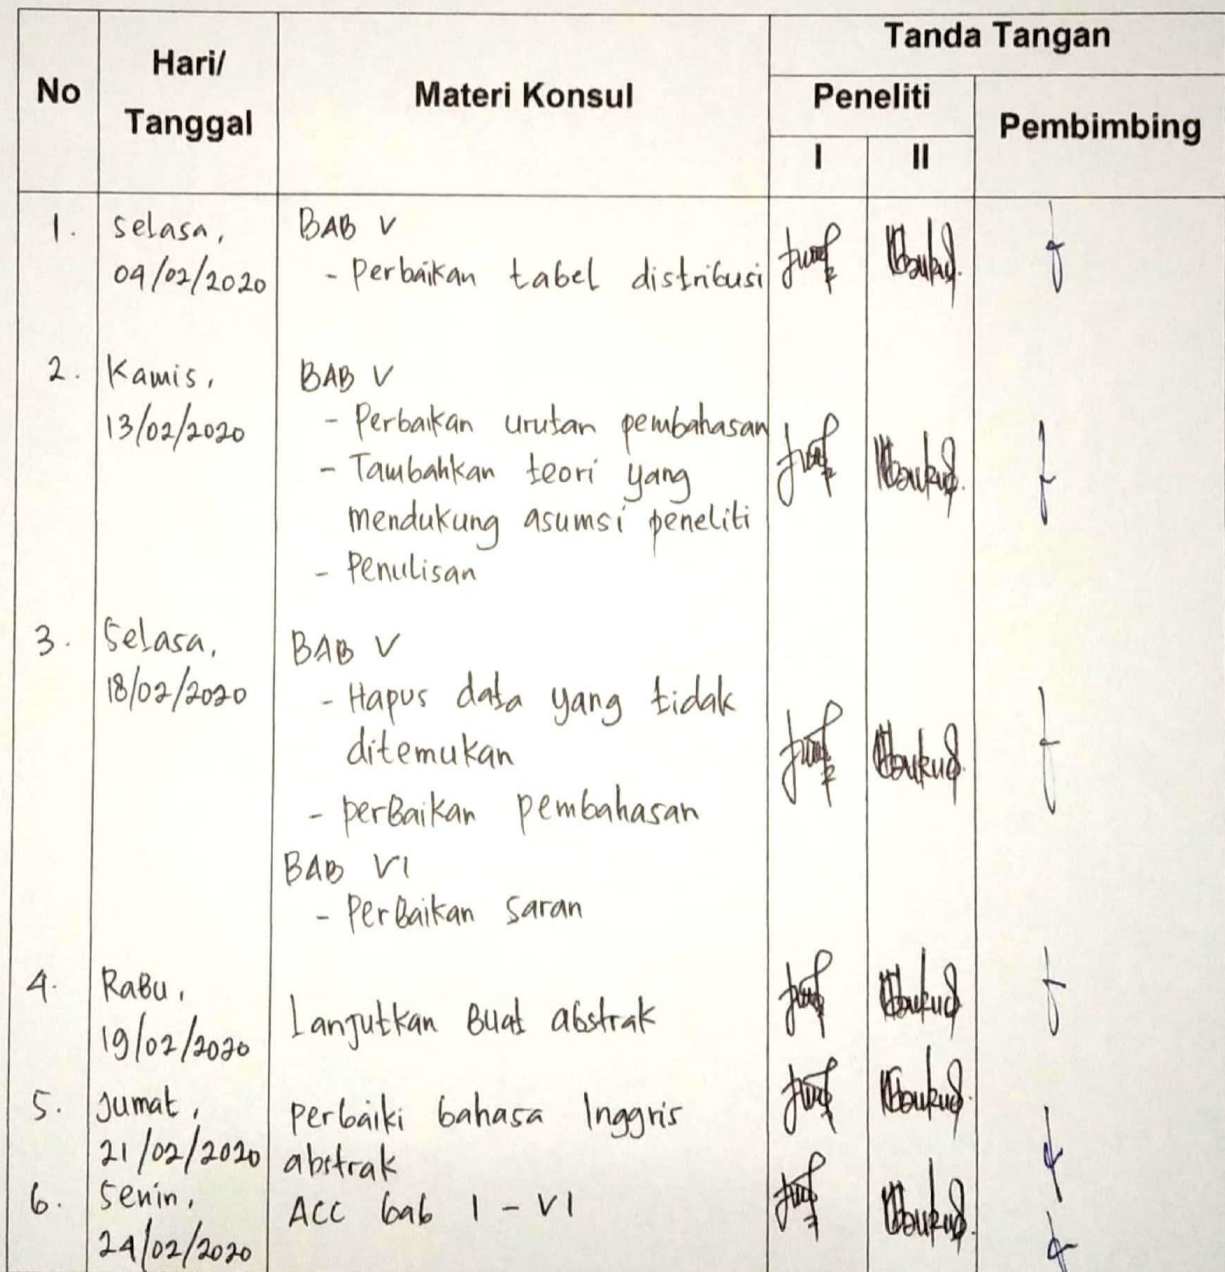 No
Hari/
Tanggal
Materi Konsul
Tanda Tangan
Peneliti
Pembimbing
I
II
1.
Selasa,
04/02/2020
BAB V
- Perbaikan tabel distribusi
2.
Kamis,
13/02/2020
BAB V
- Perbaikan urutan pembahasan
- Tambahkan teori yang
mendukung asumsi peneliti
- Penulisan
3.
Selasa,
18/02/2020
BAB V
- Hapus data yang tidak
ditemukan
- perBaikan pembahasan
BAB VI
- PerBaikan saran
4.
RaBu,
19/02/2020
Lanjutkan Buat abstrak
5.
Jumat,
21/02/2020
perbaiki bahasa Inggris
abstrak
6.
Senin,
24/02/2020
ACC bab I - VI